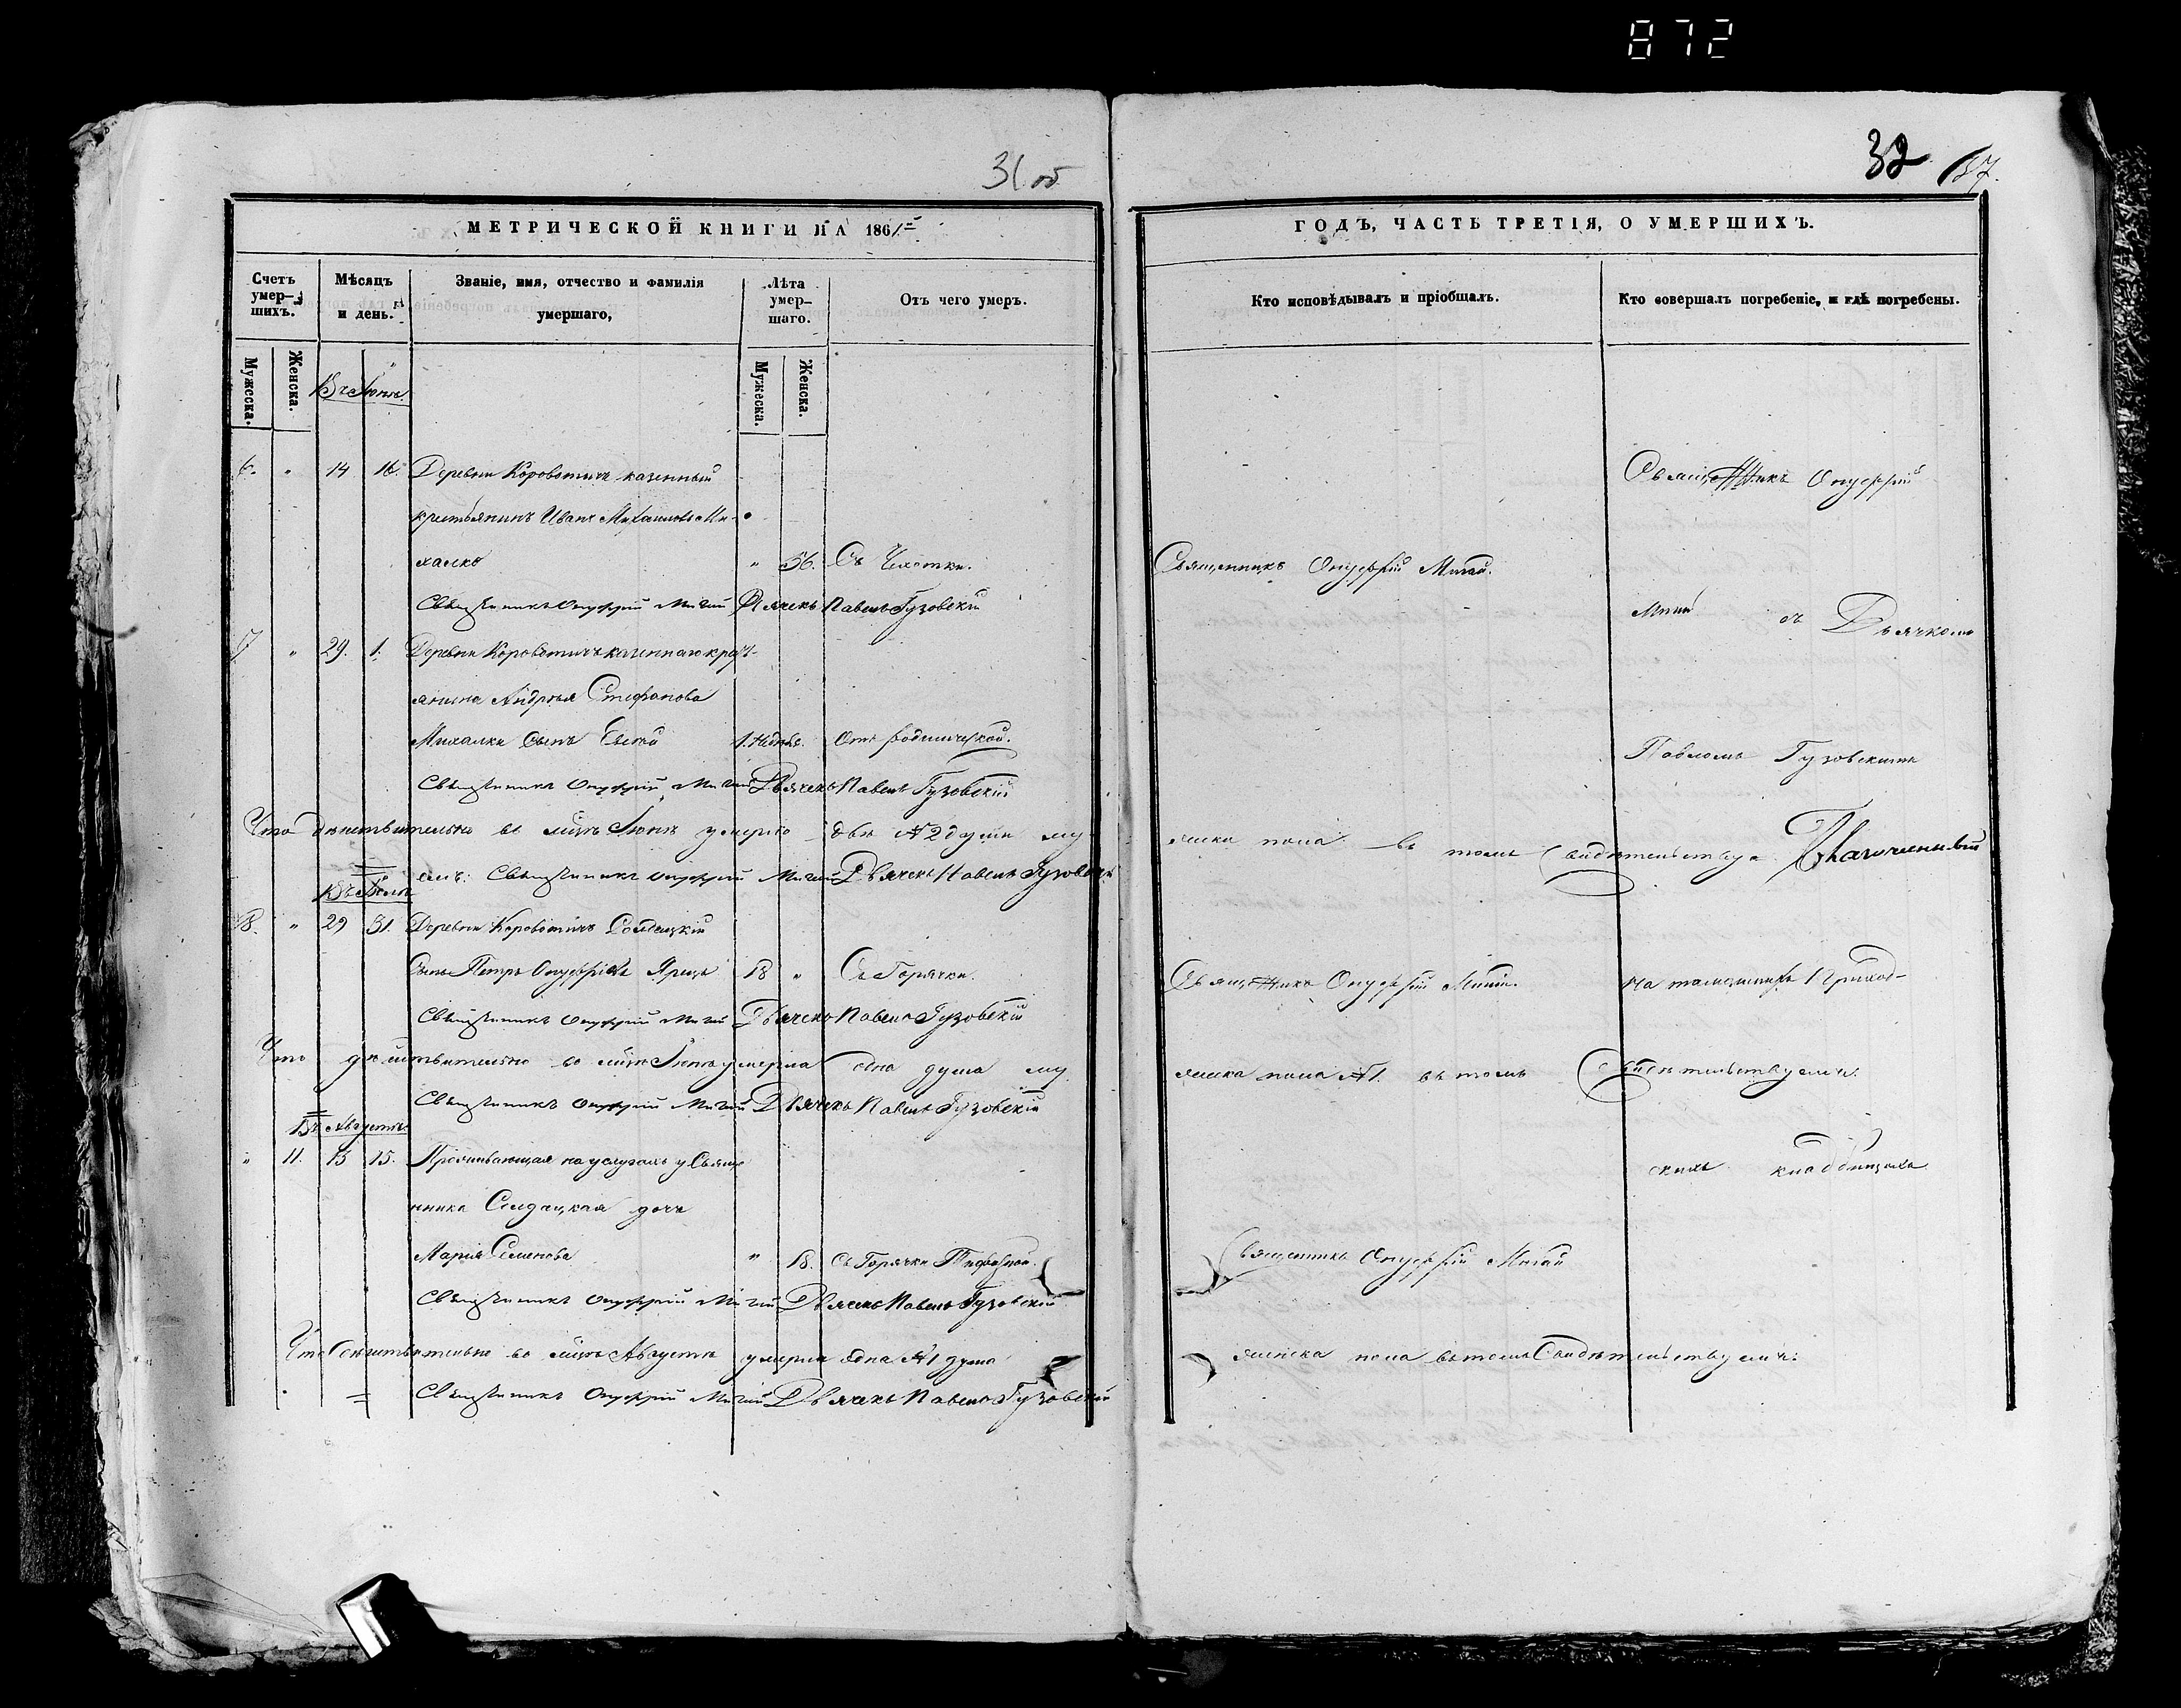 872
31 об
32
37.
МЕТРИЧЕСКОЙ КНИГИ НА 1861
ГОДЪ, ЧАСТЬ ТРЕТІЯ, О УМЕРШИХЪ.
Счетъ умер-шихъ.
Мѣсяцъ и день.
Званіе, имя, отчество и фамилія умершаго,
Лѣта умер-шаго.
Отъ чего умеръ.
Кто исповѣдывалъ и пріобщалъ.
Кто совершалъ погребеніе, и гдѣ погребены.
Мужеска.
Женска.
Мужеска.
Женска.
Въ Іюнѣ
6. " 14 16. Деревни Коровотичъ казенный
Священникъ Онуфрій
крестьянинъ Иванъ Михаиловъ Ми-
халко " 56. Съ Чихотки.
Священникъ Онуфрій Мигай.
Священникъ Онуфрій Мигай Дьячекъ Павелъ Гузовскій
Мигай съ Дьячкомъ
7 " 29. 1. Деревни Коровотичъ казеннаго крест-
янина Андрея Стефанова
Михалки сынъ 1. недѣля. Отъ родимической.
Павломъ Гузовскимъ
Священникъ Онуфрій Мигай Дьячекъ Павелъ Гузовскій
Что дѣйствительно въ мѣцѣ Іюнѣ умерло двѣ № 2 души му
жеска пола въ томъ свидѣтельствуе
емъ: Священникъ Онуфрій Мигай Дьячекъ Павелъ Гузовскій
Въ Іюлѣ
8. " 29 31. Деревни Коровотичъ Солдацкій
сынъ Петръ Онуфріевъ 18 " Съ Горячки.
Священникъ Онуфрій Мигай.
на тамошнихъ Приход-
Священникъ Онуфрій Мигай Дьячекъ Павелъ Гузовскій
Что дѣйствительно въ мѣцѣ Іюлѣ умерла една душа му
жеска пола № 1. въ томъ свидѣтельствуемъ.
Священникъ Онуфрій Мигай Дьячекъ Павелъ Гузовскій
Въ Августѣ
" 11. 13 15. Проживающая на услугахъ у Свяще
скихъ кладбищахъ
нника Солдацкая дочь
Марія Семенова " 18. Съ Горячки Тифозной.
Священникъ Онуфрій Мигай
Священникъ Онуфрій Мигай Дьячекъ Павелъ Гузовскій
Что дѣйствительно въ мѣцѣ Августѣ умерла една № 1 душа
женска пола въ томъ Свидѣтельствуемъ:
Священникъ Онуфрій Мигай Дьячекъ Павелъ Гузовскій